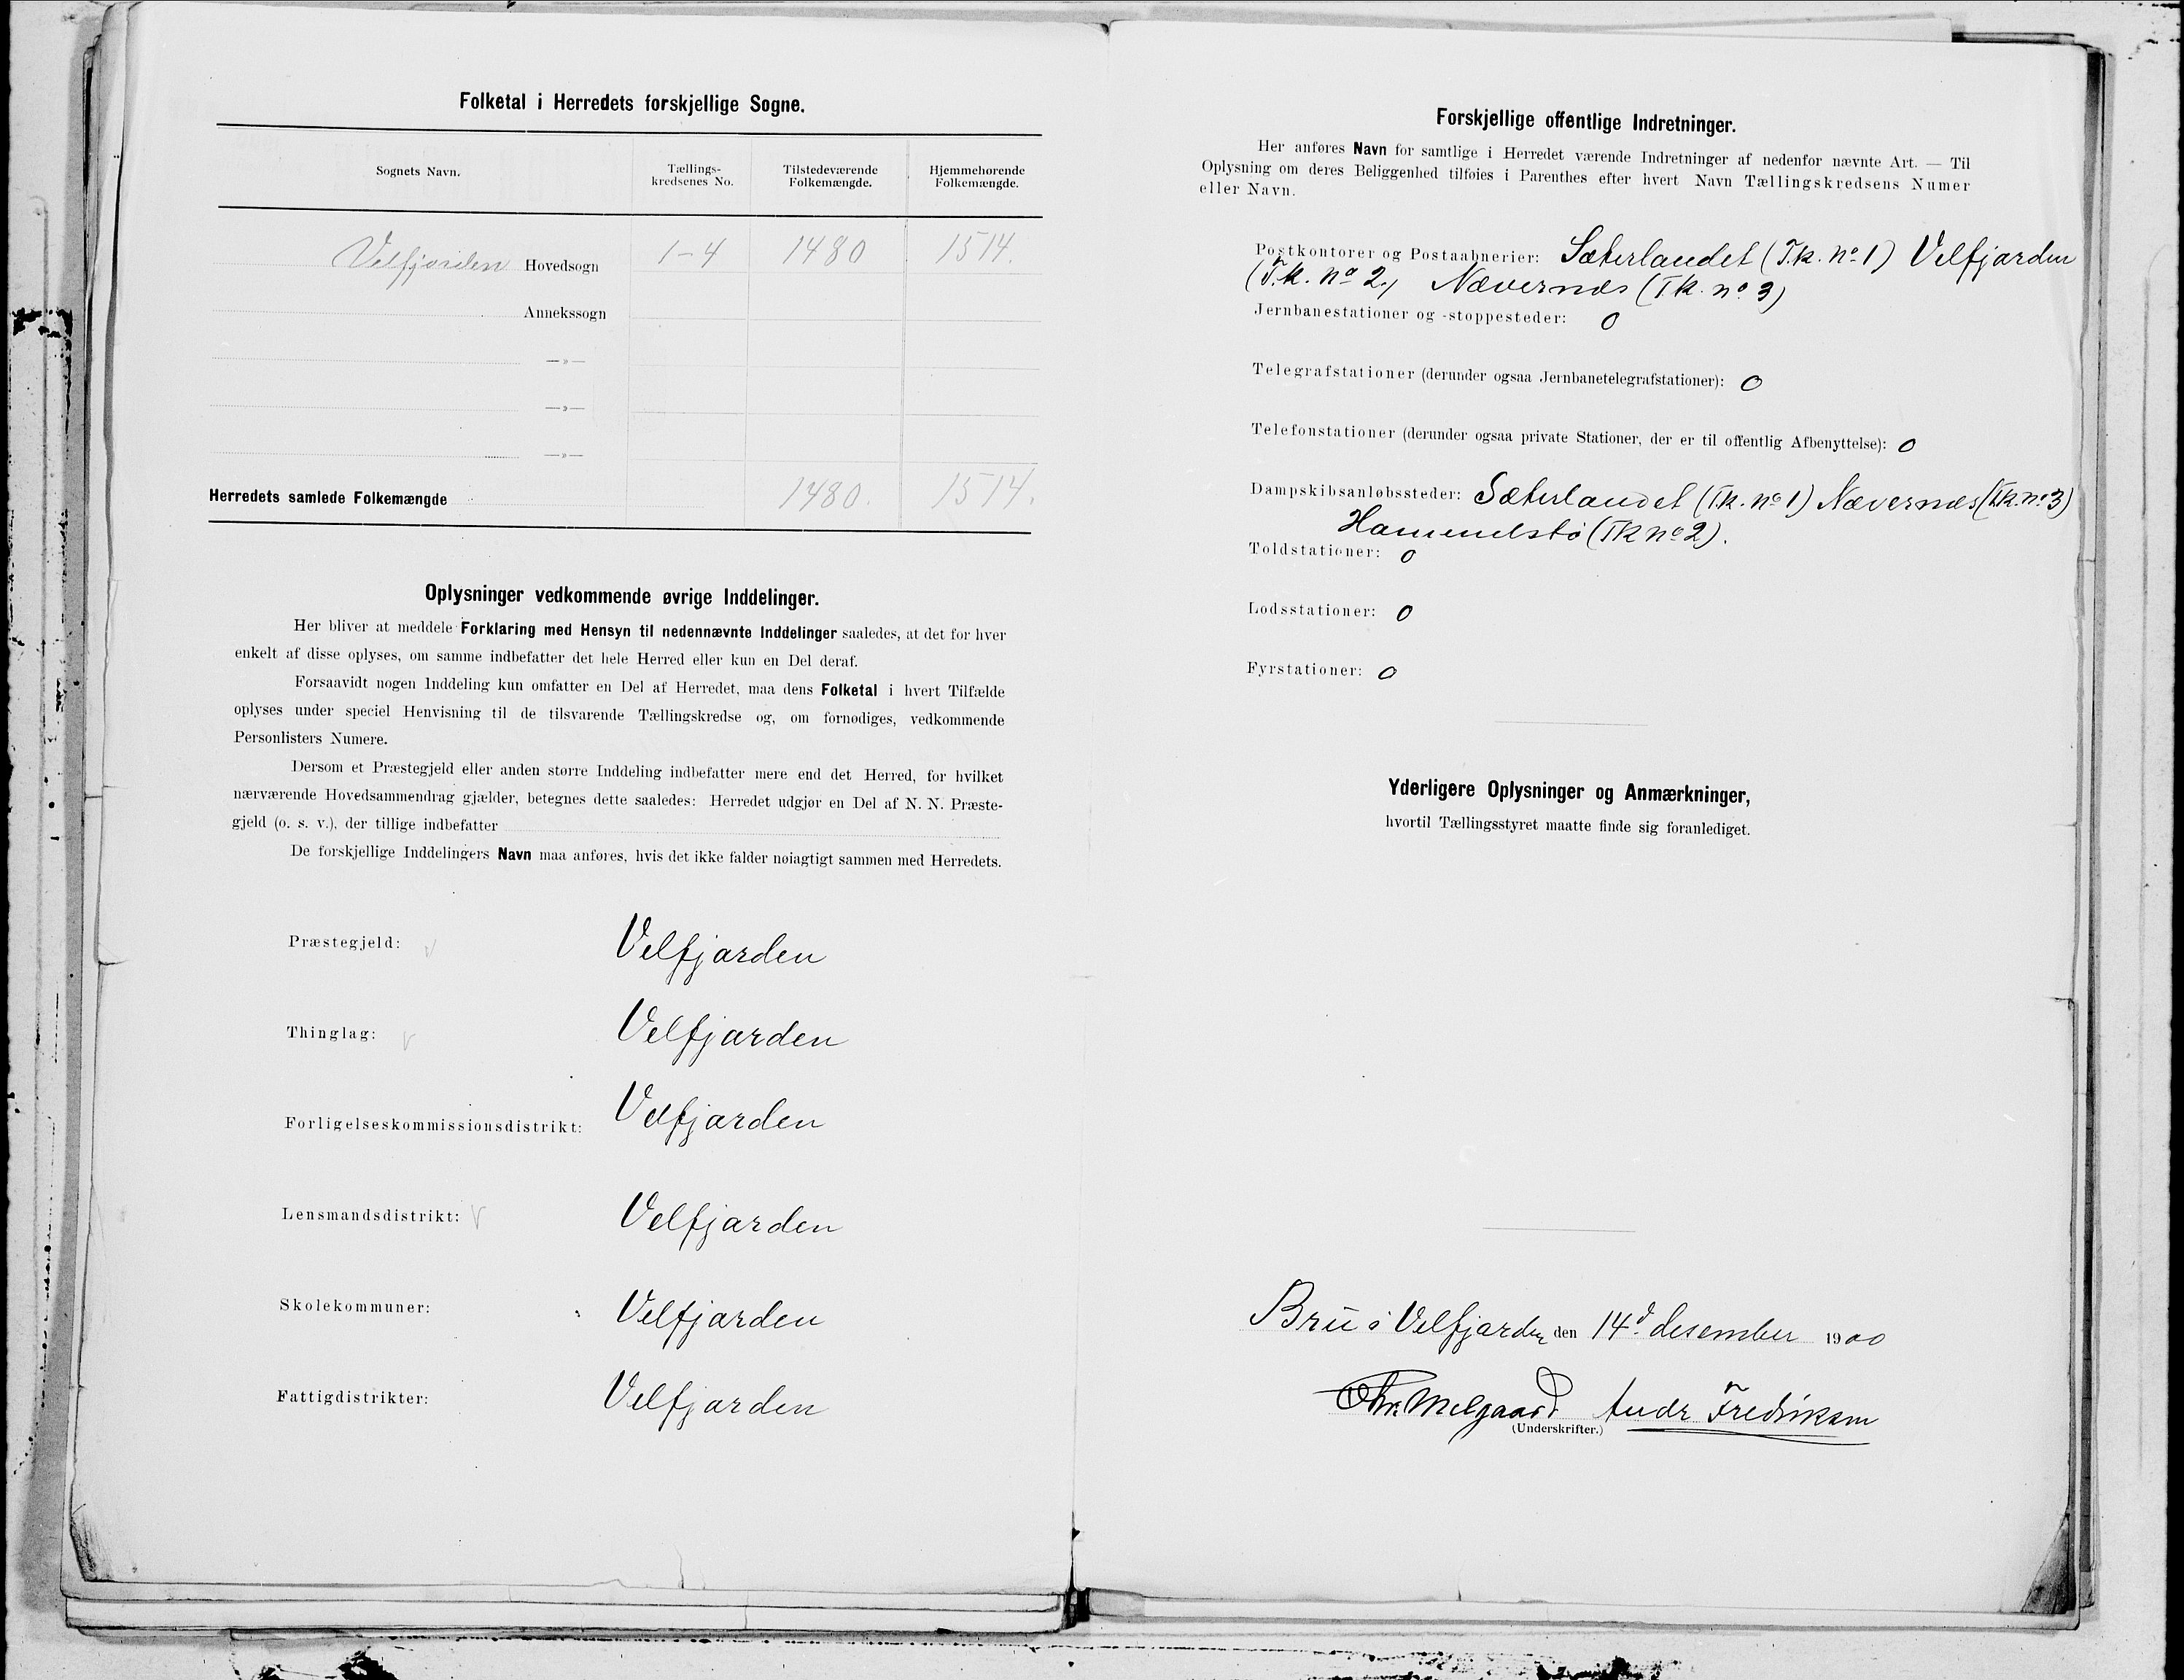 Folketal i Herredets forskjellige Sogne.
Sognets Navn.
Tællings-
kredsenes No.
Tilstedeværende
Folkemængde.
Hjemmehørende
Folkemængde.
Velfjorden Hovedsogn 1-4 1480 1514.
Annekssogn
—»—
—»—
—»—
Herredets samlede Folkemængde 1480. 1514.
Oplysninger vedkommende øvrige Inddelinger.
Her bliver at meddele Forklaring med Hensyn til nedennævnte Inddelinger saaledes, at det for hver
enkelt af disse oplyses, om samme indbefatter det hele Herred eller kun en Del deraf.
Forsaavidt nogen Inddeling kun omfatter en Del af Herredet, maa dens Folketal i hvert Tilfælde
oplyses under speciel Henvisning til de tilsvarende Tællingskredse og, om fornødiges, vedkommende
Personlisters Numere.
Dersom et Præstegjeld eller anden større Inddeling indbefatter mere end det Herred, for hvilket
nærværende Hovedsammendrag gjælder, betegnes dette saaledes: Herredet udgjør en Del af N. N. Præste-
gjeld (o. s. v.), der tillige indbefatter
De forskjellige Inddelingers Navn maa anføres, hvis det ikke falder nøiagtigt sammen med Herredets.
Præstegjeld: Velfjorden
Thinglag: Velfjorden
Forligelseskommissionsdistrikt: Velfjorden
Lensmandsdistrikt: Velfjorden
Skolekommuner: Velfjorden
Fattigdistrikter: Velfjorden
Forskjellige offentlige Indretninger.
Her anføres Navn for samtlige i Herredet værende Indretninger af nedenfor nævnte Art. — Til
Oplysning om deres Beliggenhed tilføies i Parenthes efter hvert Navn Tællingskredsens Numer
eller Navn.
Postkontorer og Postaabnerier: Sæterlandet (T.k. no 1) Velfjorden
(T.k. no 2.) Nævernæs (T.k. no 3)
Jernbanestationer og -stoppesteder: 0
Telegrafstationer (derunder ogsaa Jernbanetelegrafstationer): 0
Telefonstationer (derunder ogsaa private Stationer, der er til offentlig Afbenyttelse): 0
Dampskibsanløbssteder: Sæterlandet (T.k. no 1) Nævernæs (T.k. no 3)
Hommelstø (Tk no 2).
Toldstationer: 0
Lodsstationer: 0
Fyrstationer: 0
Yderligere Oplysninger og Anmærkninger,
hvortil Tællingsstyret maatte finde sig foranlediget.
Bru i Velfjorden den 14d desember 1900
Chr. Melgaard Andr Fredriksen
(Underskrifter.)